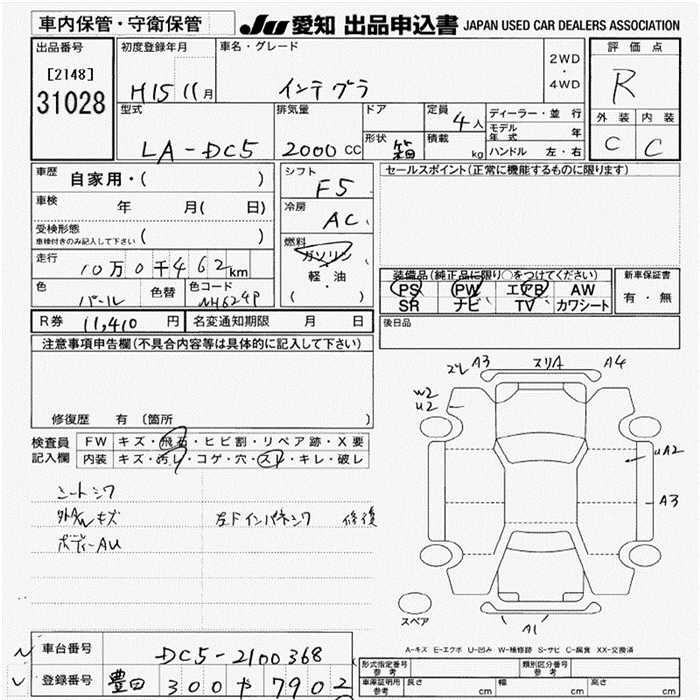 車内保管・守衛保管
JU 愛知 出品申込書 JAPAN USED CAR DEALERS ASSOCIATION
出品番号
[2148]
31028
初度登録年月
H15 11月
車名・グレード
インテグラ
2WD
・
4WD
評価点
R
外装 内装
C C
型式
LA-DC5
排気量
2000 CC
ドア
形状
箱
定員
4人
積載
kg
ディーラー・並行
モデル年式 年
ハンドル 左・右
車歴
自家用・( )
車検
年 月( 日)
受検形態
車検付きのみ記入して下さい ( )
走行
10万0千462km
色
パール
色替
色コード
NH624P
シフト
F5
冷房
AC
燃料
ガソリン
軽・油
( )
セールスポイント(正常に機能するものに限ります)
装備品(純正品に限り○をつけてください)
PS PW エアB AW
SR ナビ TV カワシート
新車保証書
有・無
R券 11,410 円
名変通知期限 月 日
後日品
注意事項申告欄(不具合内容等は具体的に記入して下さい)
修復歴 有 〔箇所 〕
検査員
記入欄
FW キズ・飛石・ヒビ割・リペア跡・X要
内装 キズ・汚レ・コゲ・穴・スレ・キレ・破レ
シートシワ
外AWキズ
ボディーAU
左Fインパネシワ 修復
ズレ A3 スリA A4
W2
U2
UA2
A3
スペア
A1
A-キズ E-エクボ U-凹み W-補修跡 S-サビ C-腐食 XX-交換済
車台番号
DC5-2100368
登録番号
豊田 300 や 7902
形式指定番号
参考
類別区分番号
参考
車庫証明用
参考
長さ cm 幅 cm 高さ cm